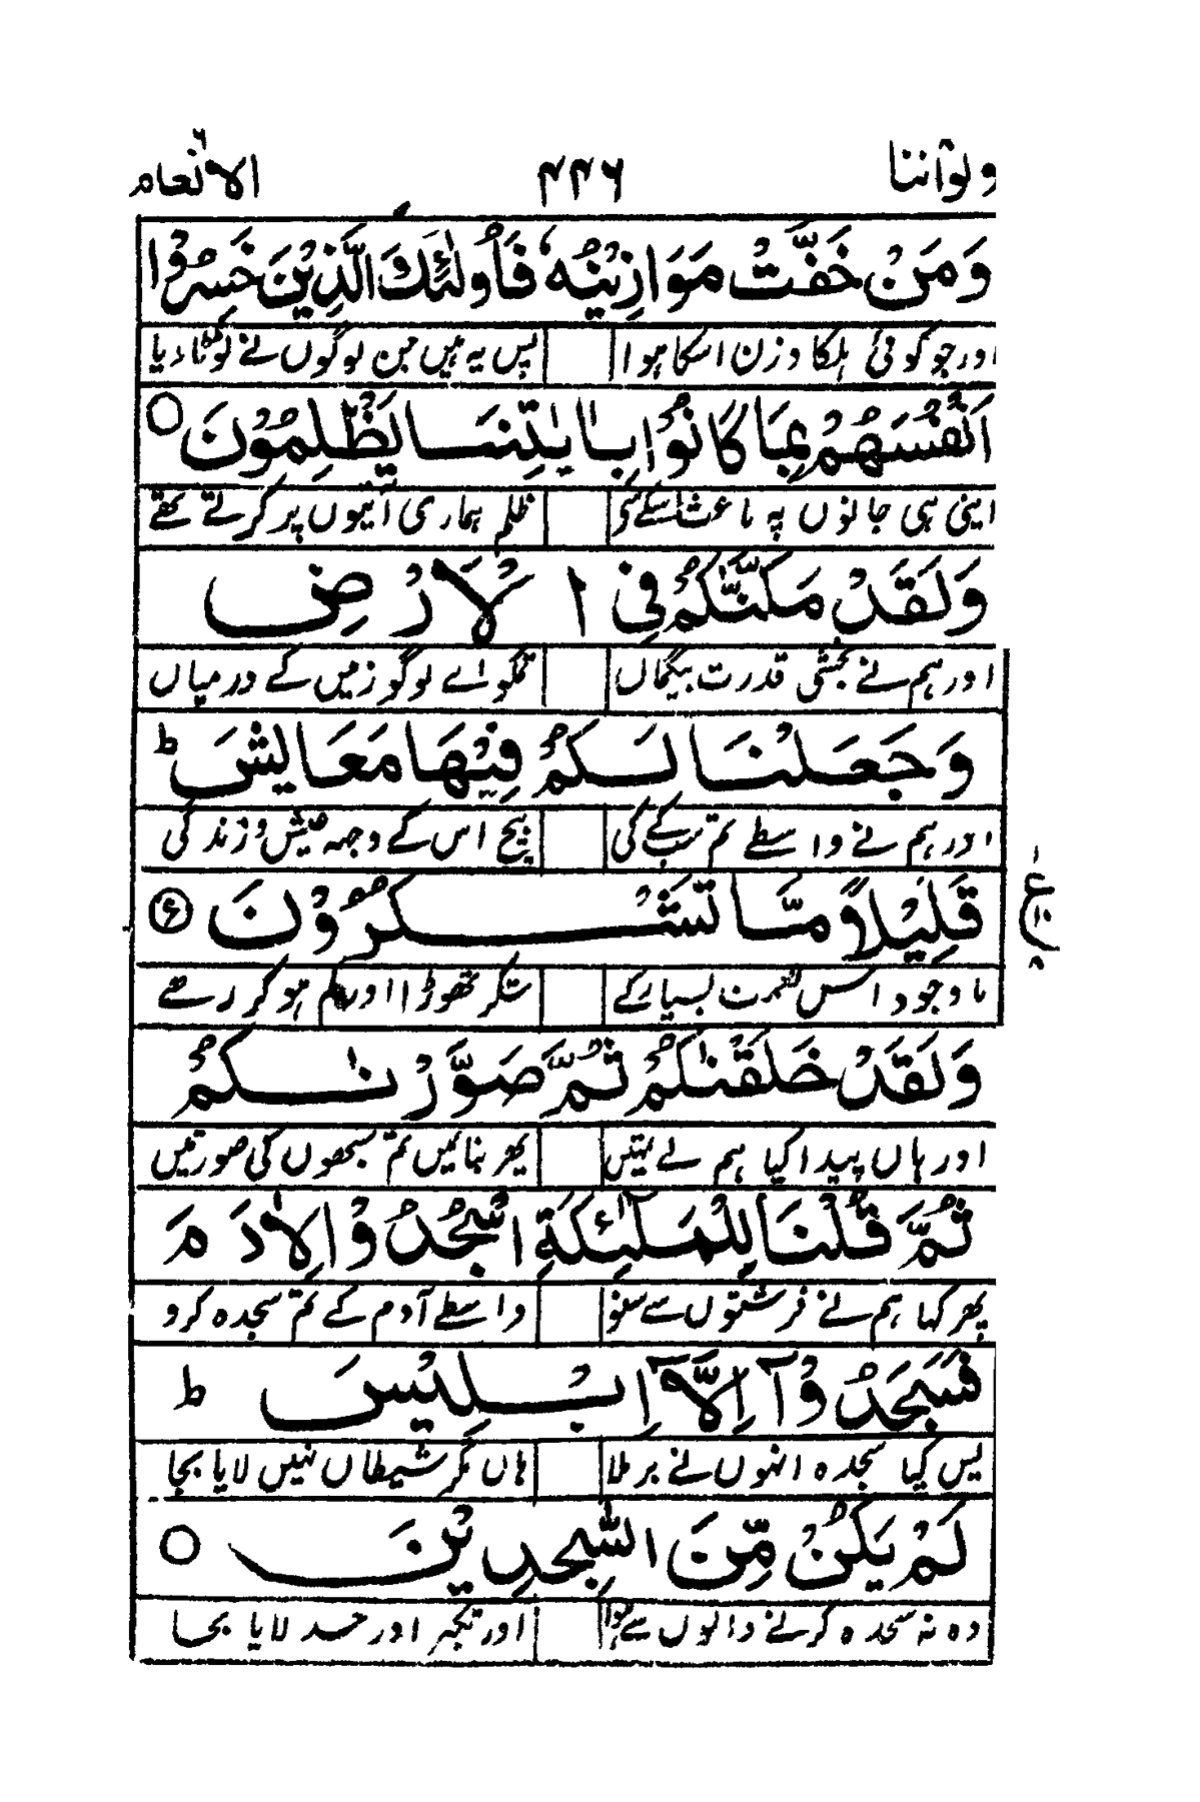 ولواننا ۴۴۶ الانعام ۶
وَمَنْ خَفَّتْ مَوَازِيْنُهٗ فَاُولٰٓئِكَ الَّذِيْنَ خَسِرُوْا
اور جو کوئی ہلکا وزن اسکا ہوا پس یہ ہیں جن لوگوں نے ٹوٹا دیا
اَنْفُسَهُمْ بِمَا كَانُوْا بِاٰيٰتِنَا يَظْلِمُوْنَ ○
اپنی ہی جانوں پہ باعث اسکے کہ ظلم ہماری آیتوں پر کرتے تھے
وَلَقَدْ مَكَّنّٰكُمْ فِى الْاَرْضِ
اور ہم نے بخشی قدرت بیگماں تمکو اے لوگو زمیں کے درمیاں
وَجَعَلْنَا لَكُمْ فِيْهَا مَعَايِشَ ؕ
اور ہم نے واسطے تم سب کے کی بیچ اس کے وجہ عیش و زندگی
قَلِيْلًا مَّا تَشْكُرُوْنَ ع
باوجود اس نعمت بسیار کے شکر تھوڑا اور تم ہو کر رہے
وَلَقَدْ خَلَقْنٰكُمْ ثُمَّ صَوَّرْنٰكُمْ
اور ہاں پیدا کیا ہم نے تمہیں پھر بنائیں تم سبھوں کی صورتیں
ثُمَّ قُلْنَا لِلْمَلٰٓئِكَةِ اسْجُدُوْا لِاٰدَمَ
پھر کہا ہم نے فرشتوں سے سنو واسطے آدم کے تم سجدہ کرو
فَسَجَدُوْٓا اِلَّآ اِبْلِيْسَ ؕ
پس کیا سجدہ انہوں نے برملا ہاں مگر شیطاں نہیں لایا بجا
لَمْ يَكُنْ مِّنَ السّٰجِدِيْنَ ○
وہ نہ سجدہ کرنے والوں سے ہوا اور تکبر اور حسد لایا بجا